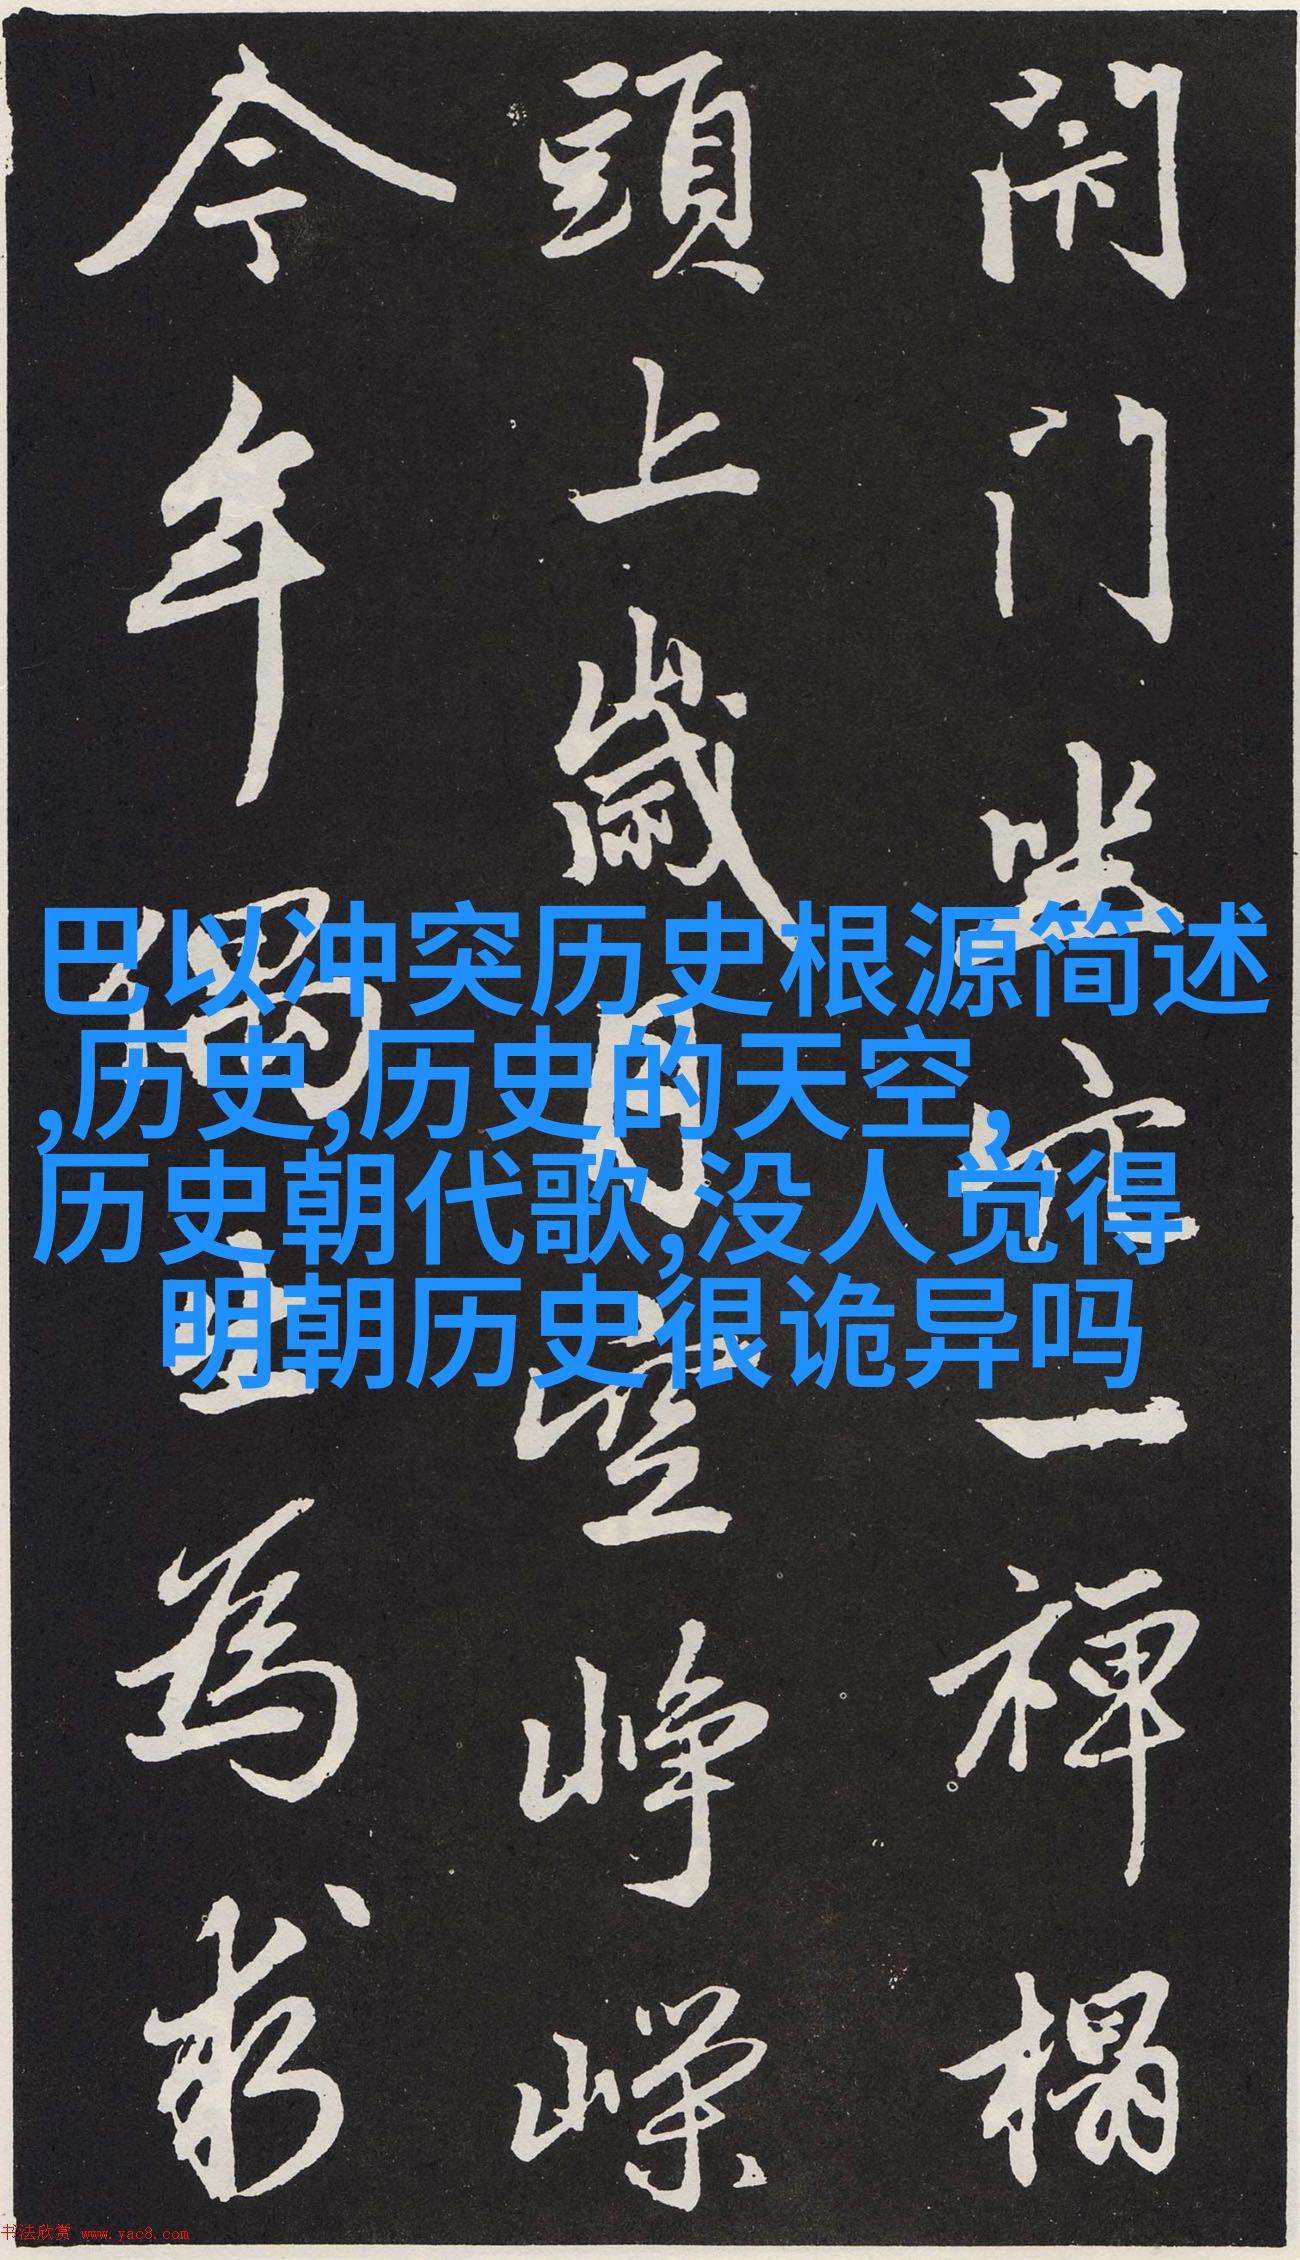 闭门坐穴一禅榻
頭上歲月空峥嵘
今年偶出為求
巴以冲突历史根源简述
,历史,历史的天空,
历史朝代歌,没人觉得
明朝历史很诡异吗
书法欣赏 www.yac8.com